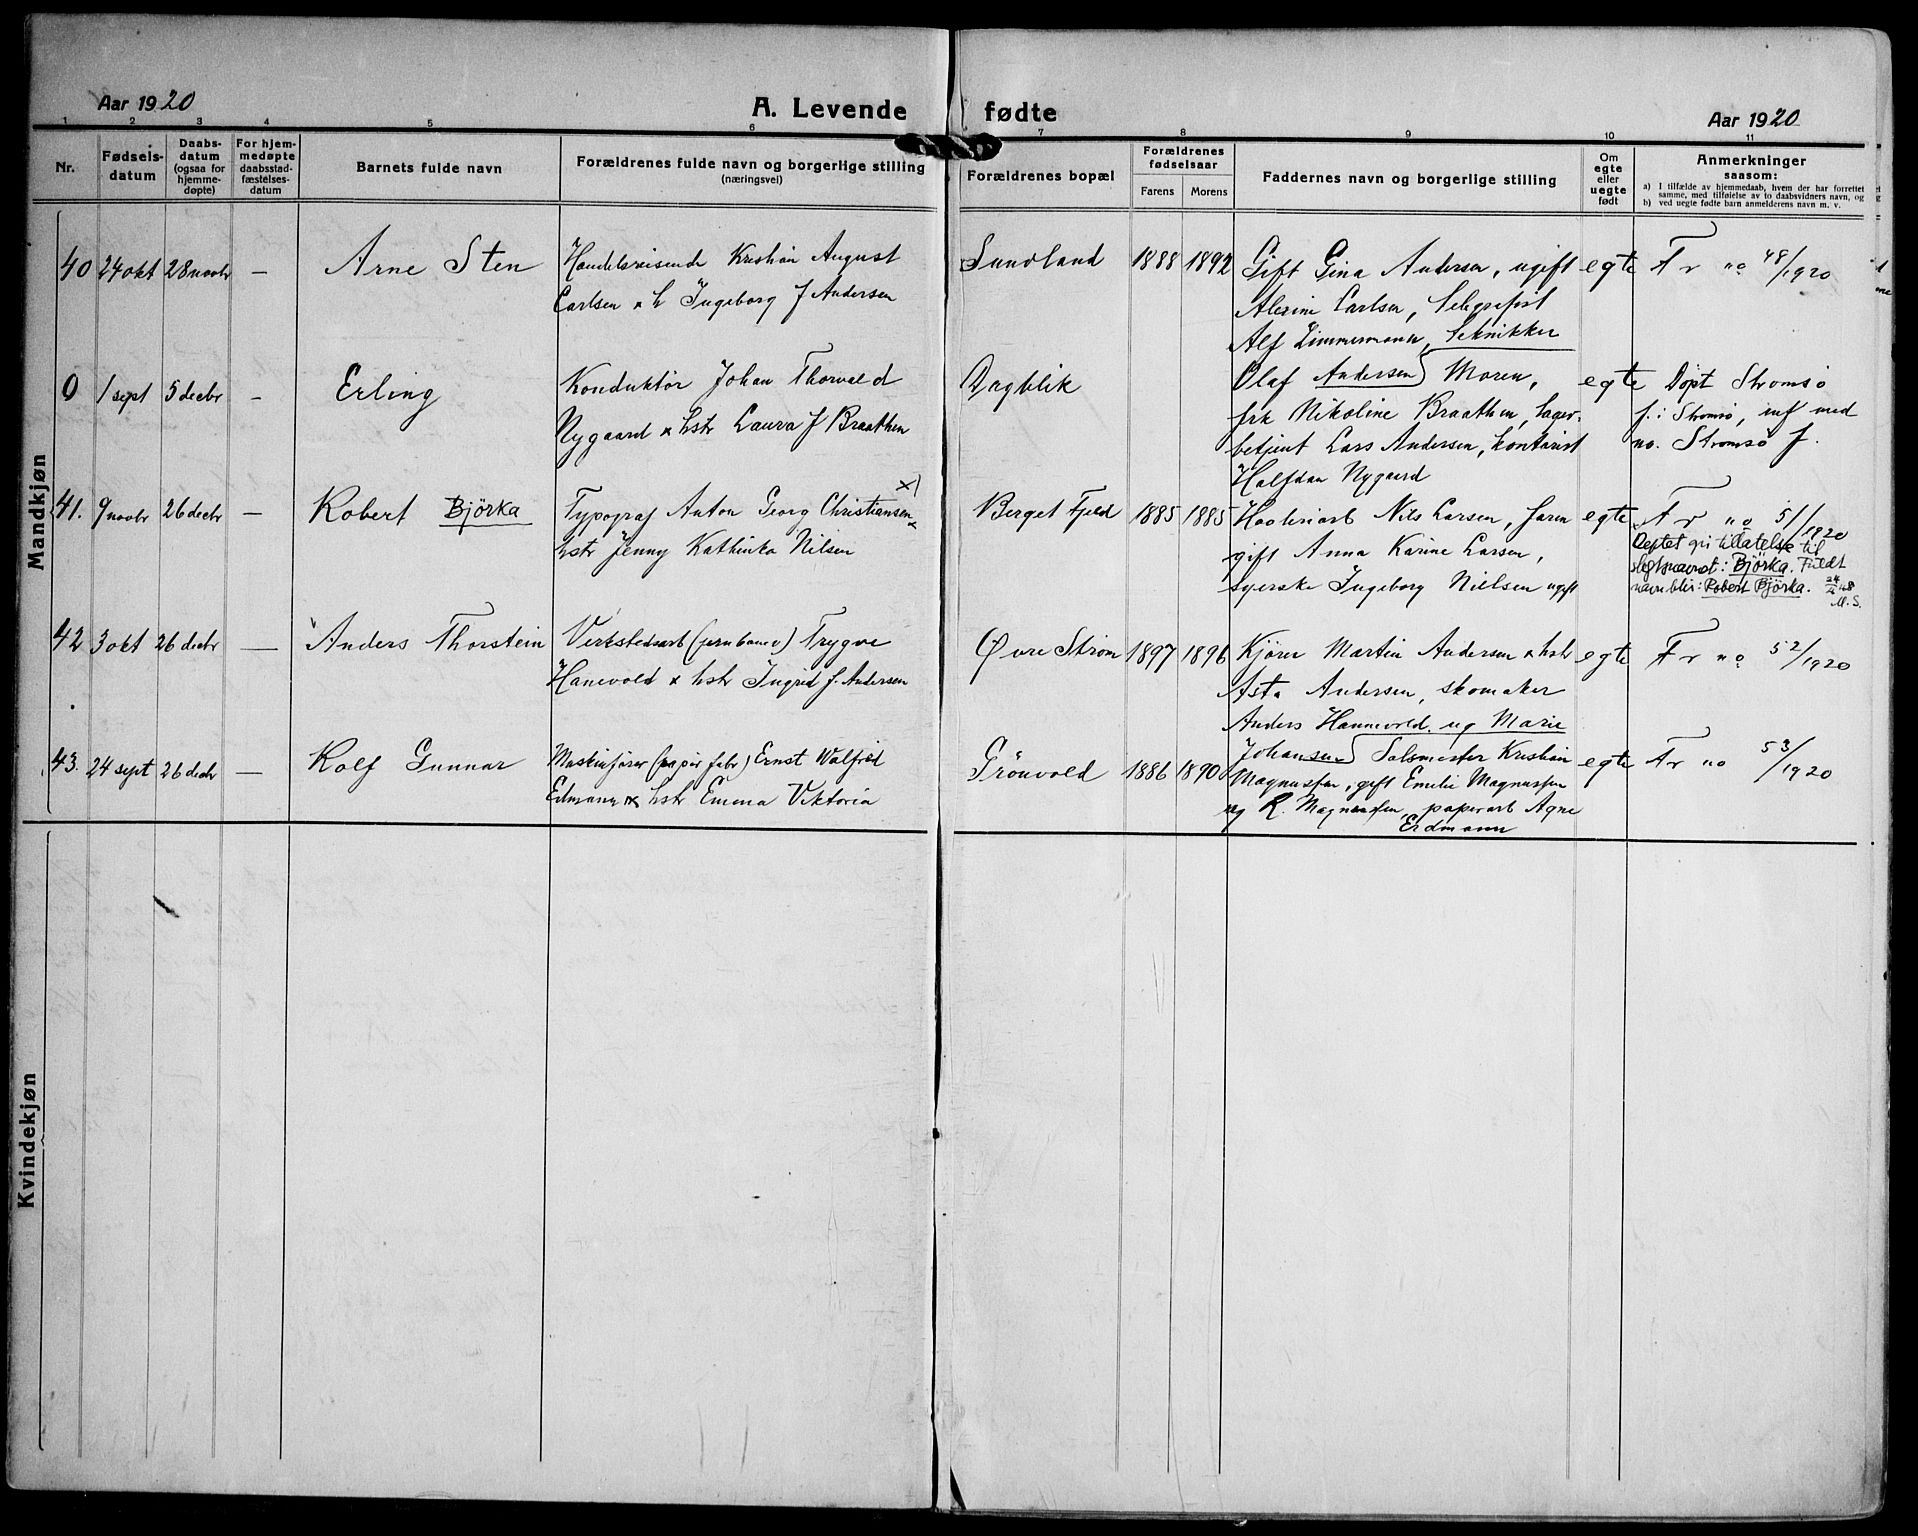 Aar 1920
A. Levende fødte
Aar 1920
1 2 3 4 5 6 7 8 9 10 11
Nr.
Fødselsdatum
Daabsdatum (ogsaa for hjemmedøpte)
For hjemmedøpte daabsstadfæstelsesdatum
Barnets fulde navn
Forældrenes fulde navn og borgerlige stilling
(næringsvei)
Forældrenes bopæl
Forældrenes fødselsaar
Farens Morens
Faddernes navn og borgerlige stilling
Om egte eller uegte født
Anmerkninger
saasom:
a) I tilfælde av hjemmedaab, hvem der har forrettet
samme, med tilføielse av to daabsvidners navn, og
b) ved uegte fødte barn anmelderens navn m. v.
Mandkjøn
40 24 okt 28 novbr — Arne Sten
Handelsreisende Kristian August
Carlsen x h Ingeborg f Andersen
Sundland 1888 1892
Gift Gina Andersen, ugift
Alexine Carlsen, Telegrafist
Alf Zimmermann, Tekniker
Olaf Andersen
egte F r no 48/1920
0 1 sept 5 decbr - Erling
Konduktör Johan Thorvald
Nygaard x hstr Laura f Braathen
Dagblik
Moren,
frk Nikoline Braathen, lager-
betjent Lars Andersen, kontorist
Halfdan Nygaard
egte Döpt Strömsö
f. i Strömsö, inf med
no. Strömsö f.
41. 9 novbr 26 decbr — Robert Björka
Typograf Anton Georg Christiansen x)
x hstr Jenny Kathinka Nilsen
Berget Fjeld 1885 1885
Nils Larsen,
gift Anna Karine Larsen,
syerske Ingeborg Nielsen ugift
egte F r no 51/1920
tillatelse til
slegtsnavnet: Björka. Fuldt
navn blir: Robert Björka.
M.S.
42 3 okt 26 decbr — Anders Thorstein
Verkstedsarb (jernbanen) Trygve
Hanevold x hstr Ingrid f. Andersen
Øvre Ström 1897 1896
Kjörer Martin Andersen x hstr
Asta Andersen, skomaker
Anders Hannevold, ug Marie
Johansen
egte F r no 52/1920
43. 24 sept 26 decbr — Rolf Gunnar
Maskinförer (papir fabr) Ernst Walfrid
Edmann x hstr Emma Viktoria
Grönvold 1886 1890
Kristian
Magnussen, gift Emilie Magnussen
ug R. Magnussen, papirarb Agne
Erdmann
egte F r no 53/1920
Kvindekjøn